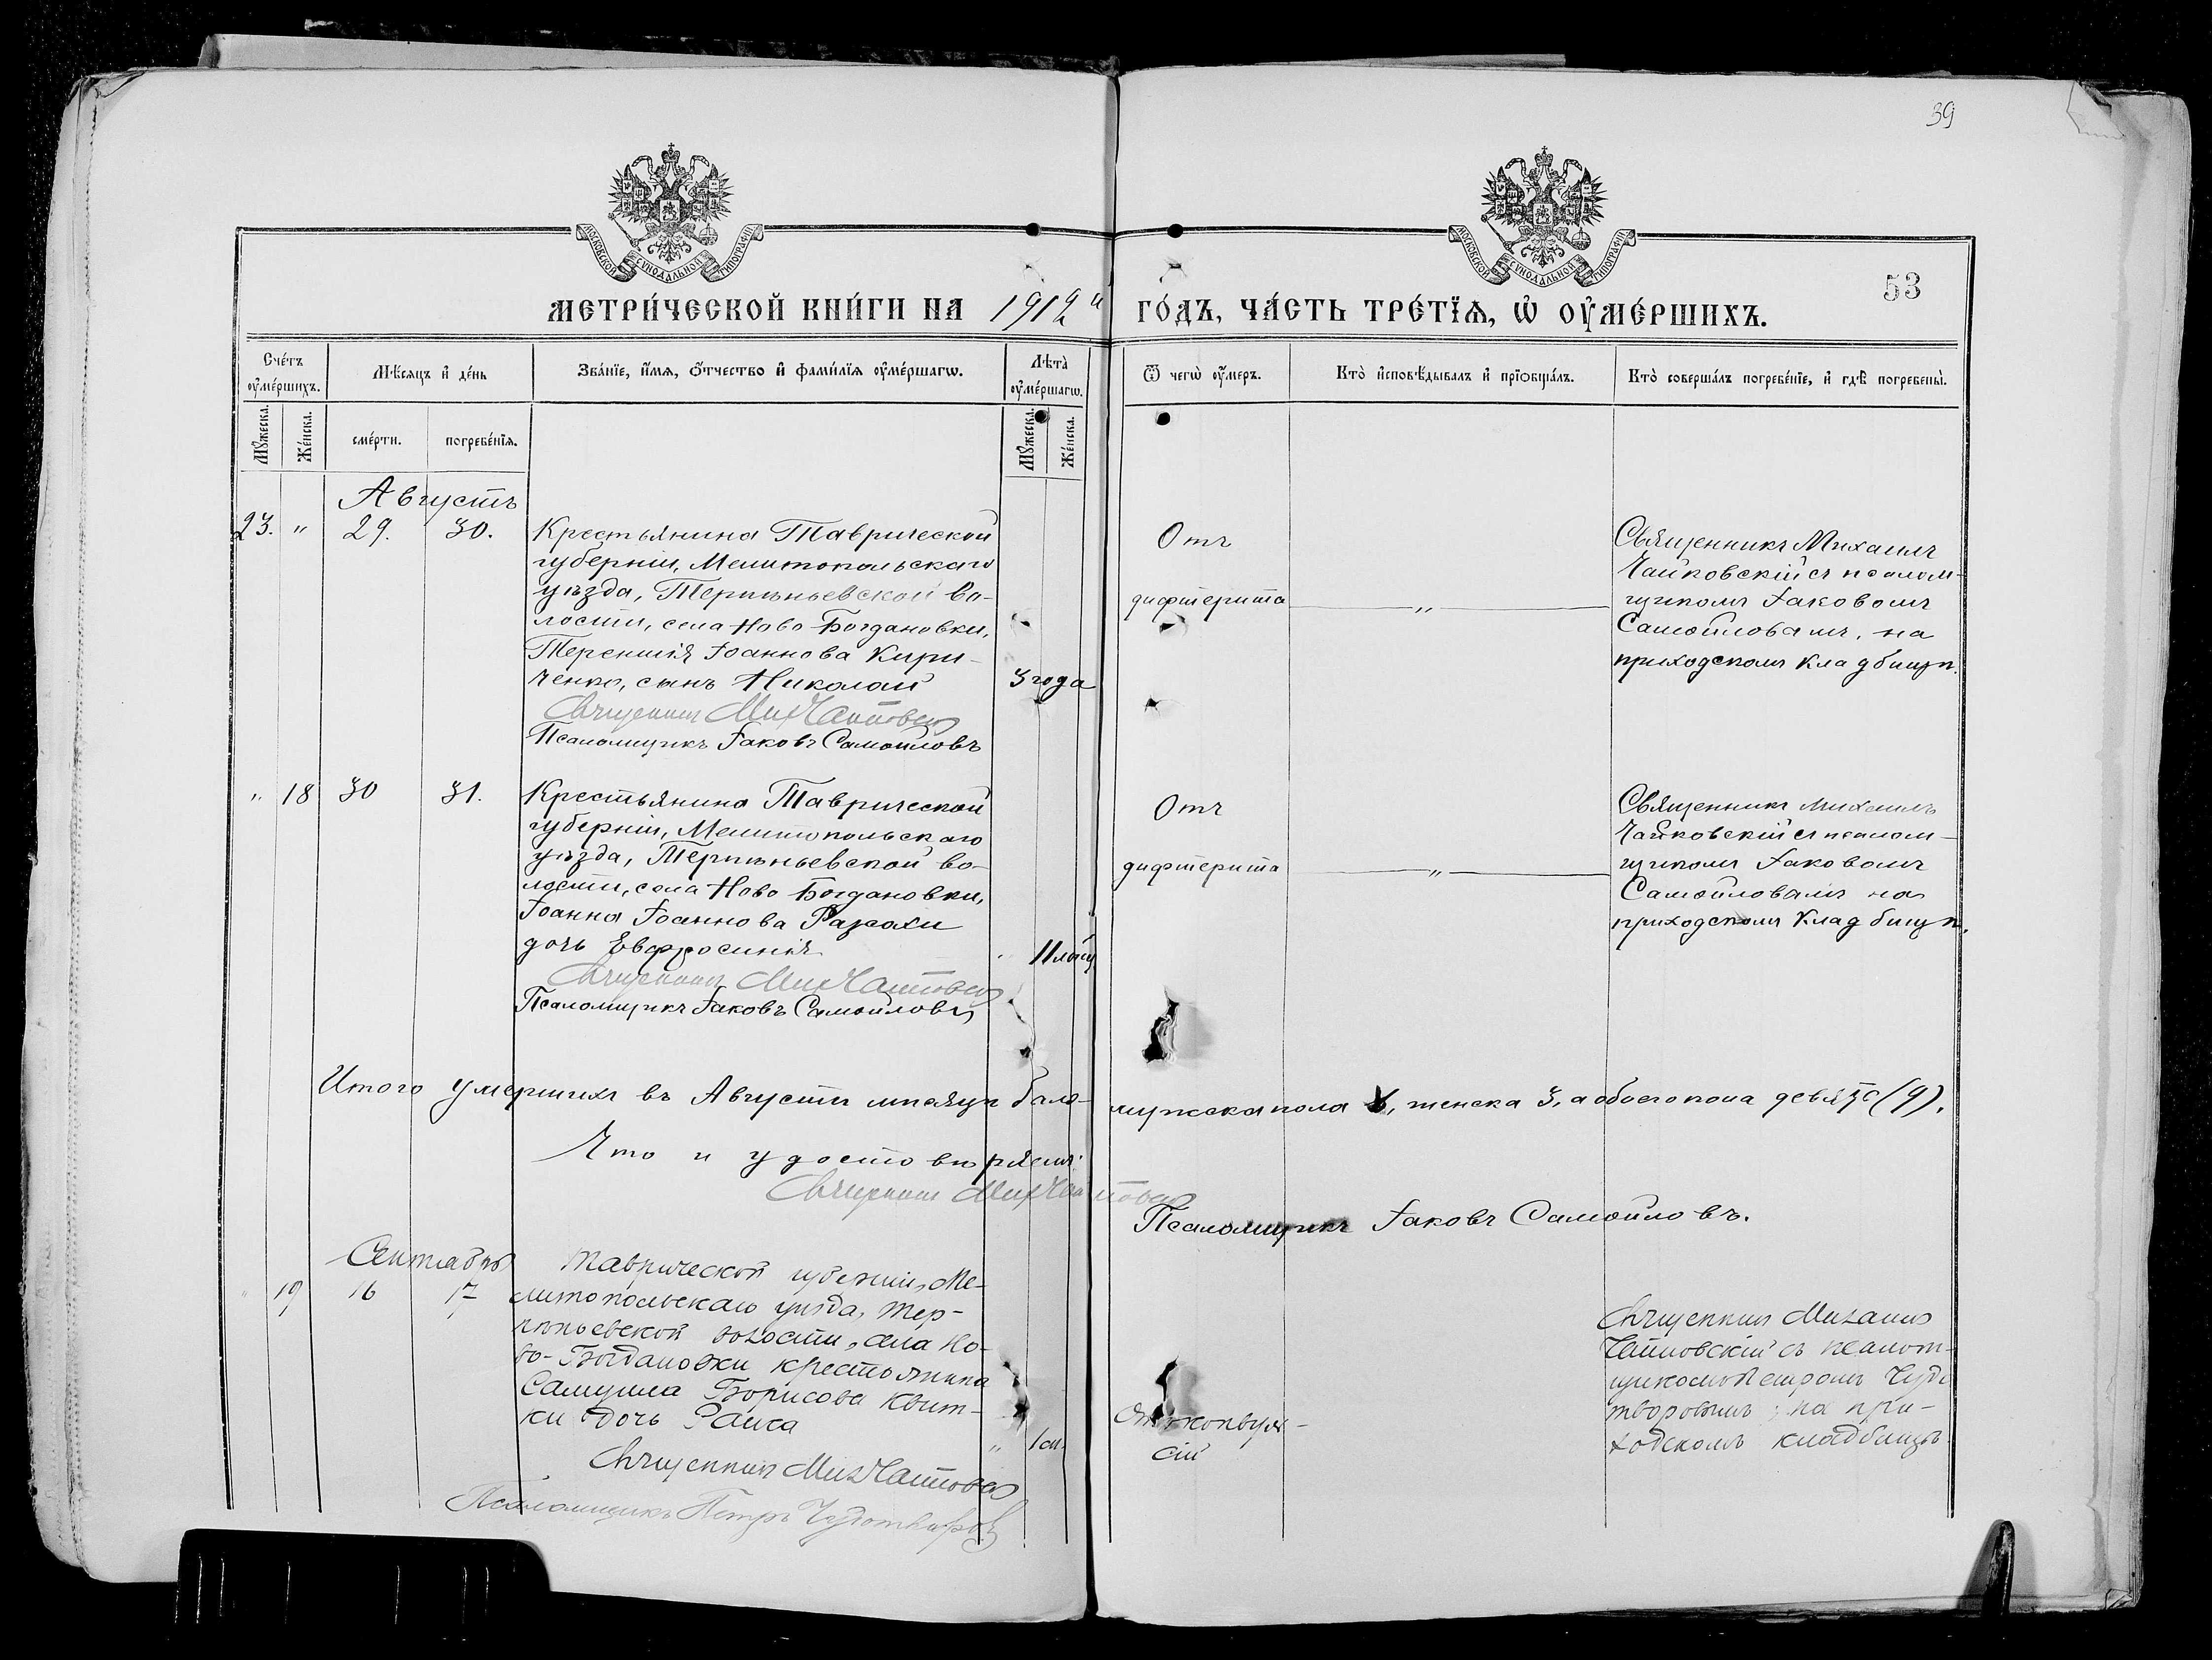 39
МОСКОВСКОЙ СУНОДАЛЬНОЙ ТИПОГРАФІИ
МОСКОВСКОЙ СУНОДАЛЬНОЙ ТИПОГРАФІИ
53
МЕТРИ́ЧЕСКОЙ КНИ́ГИ НА 1912й ГО́ДЪ, ЧА́СТЬ ТРЕ́ТЇѦ, Ѡ҆ ОУ҆МЕ́РШИХЪ.
Сче́тъ оу҆ме́ршихъ.
Мѣ́сяцъ и҆ де́нь
Зва́нїе, и҆́мѧ, ѻ҆́тчество и҆ фами́лїѧ оу҆ме́ршагѡ.
Лѣта̀ оу҆ме́ршагѡ.
Ѿ чегѡ̀ оу҆́меръ.
Кто̀ и҆сповѣ́дывалъ и҆ прїѡбща́лъ.
Кто̀ соверша́лъ погребе́нїе, и҆ гдѣ̀ погребены̀.
Мꙋ́жеска.
Же́нска.
сме́рти.
погребе́нїѧ.
Мꙋ́жеска.
Же́нска.
Августъ
23. " 29. 30.
Крестьянина Таврической
губерніи, Мелитопольскаго
уѣзда, Терпѣньевской во-
лости, села Ново Богдановки,
Терентія Іоаннова Кири-
ченко, сынъ Николай
3 года
Священникъ Мих Чайковскій
Псаломщикъ Іаковъ Самойловъ
Отъ
дифтерита
"
Священникъ Михаилъ
Чайковскій съ псалом-
щикомъ Іаковомъ
Самойловымъ, на
приходскомъ кладбищѣ.
" 18 30 31.
Крестьянина Таврической
губерніи, Мелитопольскаго
уѣзда, Терпѣньевской во-
лости, села Ново Богдановки,
Іоанна Іоаннова
дочь Евфросинія
11
Священникъ Мих Чайковскій
Псаломщикъ Іаковъ Самойловъ
Отъ
дифтерита
"
Священникъ Михаилъ
Чайковскій съ псалом-
щикомъ Іаковомъ
Самойловымъ на
приходскомъ кладбищѣ.
Итого умершихъ въ Августѣ мѣсяцѣ было
мужска пола, женска 3, а обоего пола девять (9).
Что и удостовѣряемъ
Священникъ Мих Чайковскій
Псаломщикъ Іаковъ Самойловъ.
Сентябрь
" 19 16 17
Таврической губерніи, Ме-
литопольскаго уѣзда, Тер-
пѣньевской волости, села Но-
во-Богдановки крестьянина
Самуила Борисова Квит-
ки дочь Раиса
" 1 м.
Священникъ Мих Чайковскій
Псаломщикъ Петръ Чудотворовъ
Отъ конвуль-
сій
Священникъ Михаилъ
Чайковскій съ псалом-
щикомъ Петромъ Чудо
творовымъ, на при-
ходскомъ кладбищѣ